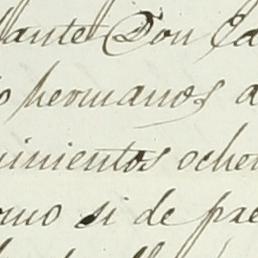 lante Don Ca
o hermanos a
uinientos oche
omo si de pre